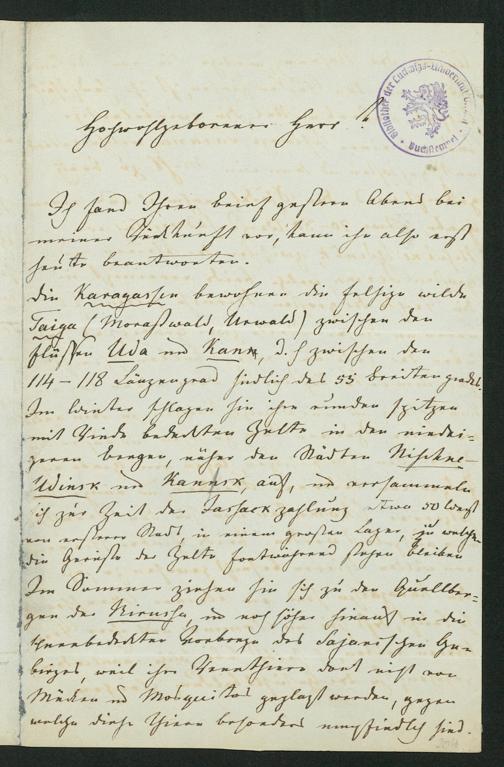 Bibliothek der Ludwigs-Universität
Buchstempel
Hochwohlgeborener Herr!
Ich fand Ihren Brief gestern Abend bei
meiner Rückkunft vor, kann ihn also erst
heutte beantworten.
Die Karagassen bewohnen die felsige wilde
Taiga (Moraßwald, Urwald) zwischen den
Flüssen Uda und Kann, d. h zwischen den
114–118 Länzengrad südlich des 55 Breitengrades.
Im Winter schlagen sie ihre runden spitzen
mit Rinde bedeckten Zelte in den niedri-
geren Bergen, näher den Städten Nischne-
Udinsk und Kannsk, auf, und versammeln
sich zur Zeit der Jassackzahlung etwa 50 Werst
von ersterer Stadt, in einem großen Lager, zu welchem
die Gerüste der Zelte fortwährend stehen bleiben
Im Sommer ziehen sie sich zu den Quellber-
gen der Birussa, und noch höher hinauf in die
schneebedeckten Vorberge des Sajanischen Ge-
birges, weil ihre Rennthiere dort nicht von
Mücken und Mosquitos geplagt werden, gegen
welche diese Thiere besonders empfindlich sind.